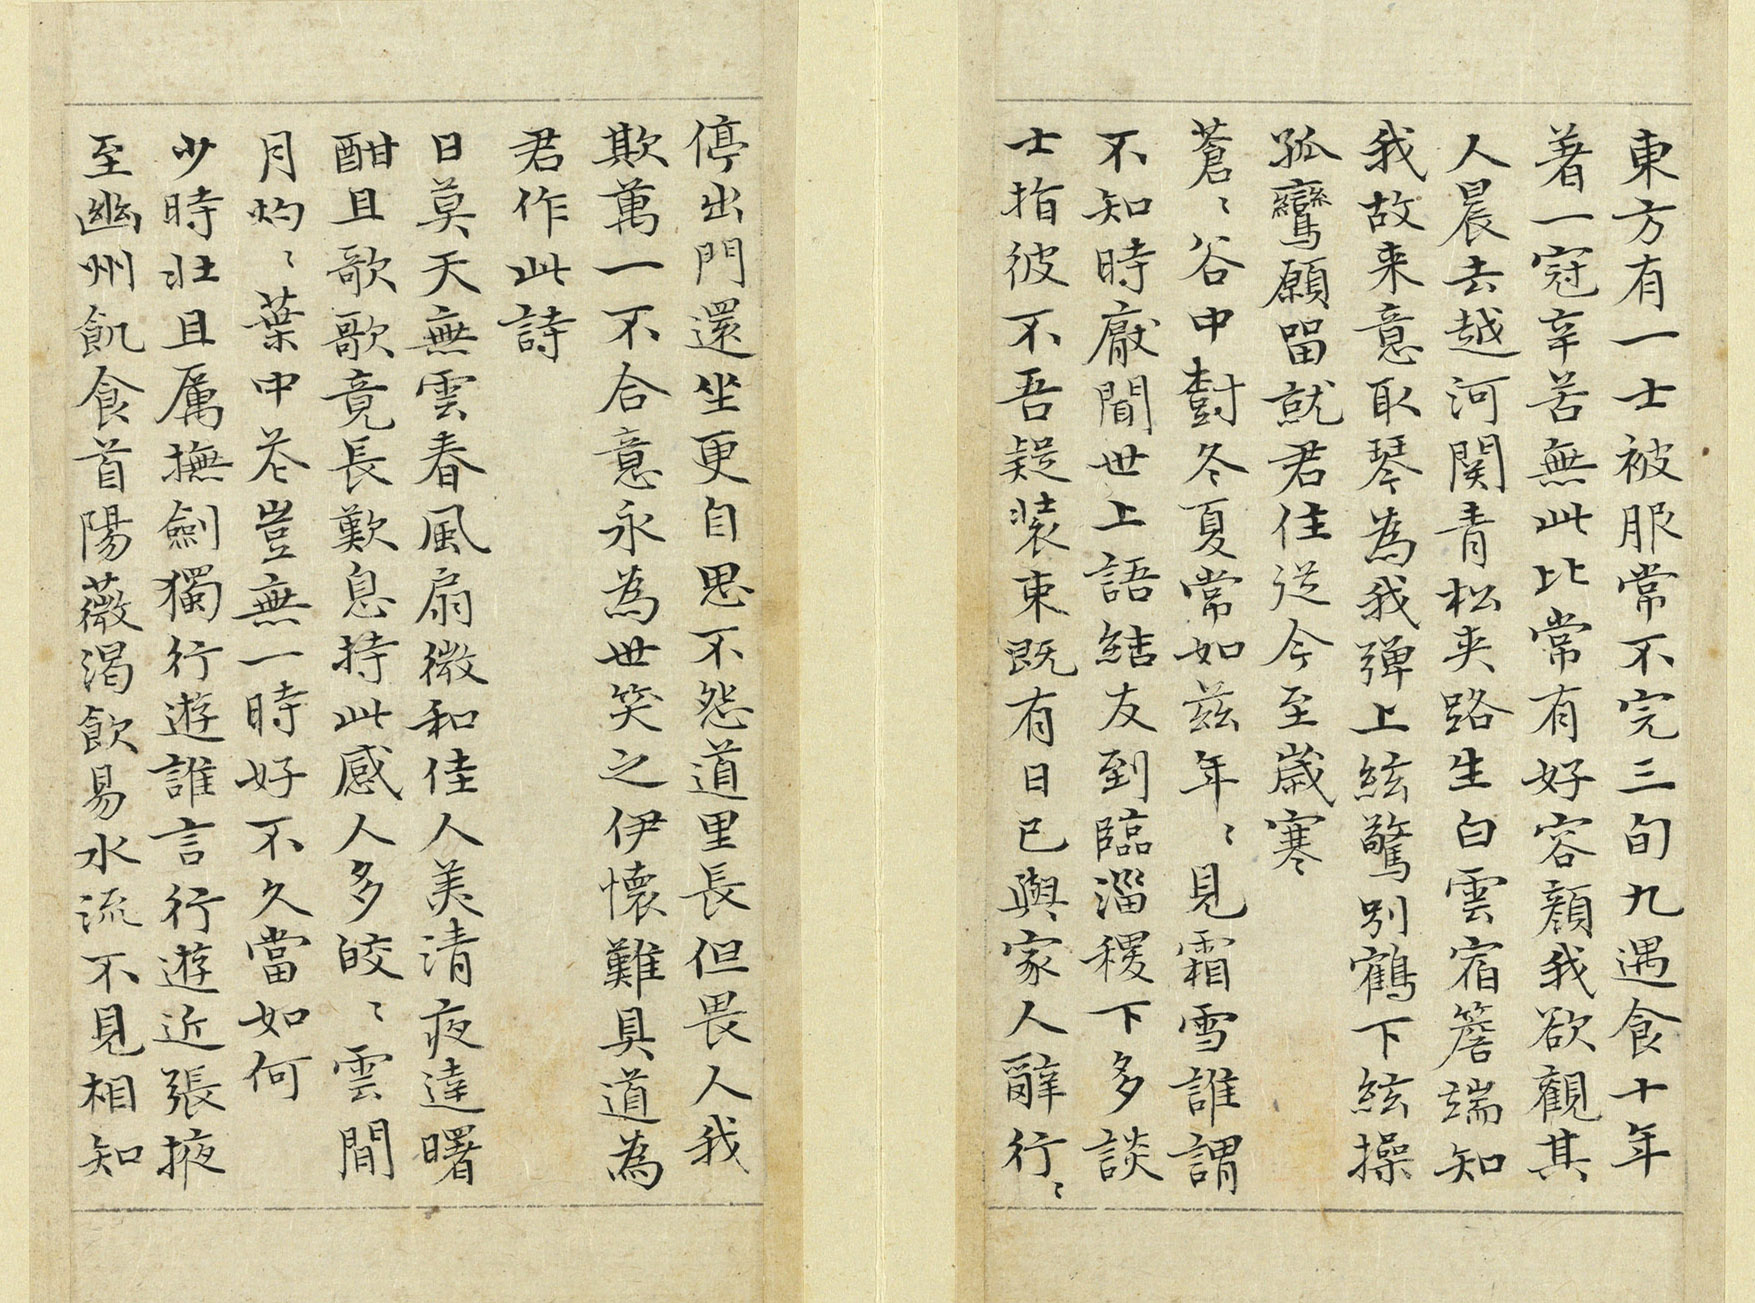 東方有一士被服常不完三旬九遇食十年
著一冠辛苦無此比常有好容顏我欲觀其
人晨去越河関青松夾路生白雲宿簷端知
我故来意取琴為我彈上絃驚別鶴下絃操
孤鸞願留就君住從今至歲寒
蒼〻谷中樹冬夏常如茲年〻見霜雪誰謂
不知時厭聞世上語結友到臨淄稷下多談
士指彼不吾疑装束既有日已與家人辭行〻
停出門還坐更自思不怨道里長但畏人我
欺萬一不合意永為世笑之伊懷難具道為
君作此詩
日莫天無雲春風扇微和佳人美清夜達曙
酣且歌歌竟長歎息持此感人多皎〻雲間
月灼〻葉中花豈無一時好不久當如何
少時壯且厲撫劍獨行遊誰言行遊近張掖
至幽州飢食首陽薇渴飲易水流不見相知